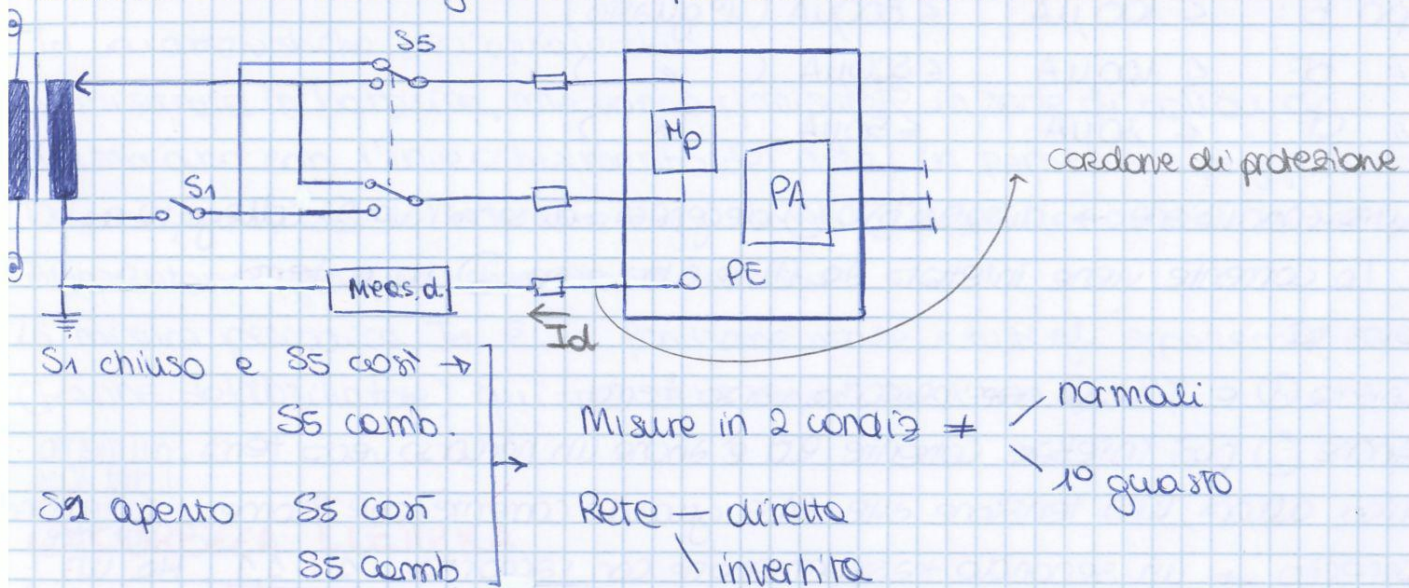 S5
S1
MP
PA
PE
Meas.d.
Id
cordone di protezione
S1 chiuso e S5 così →
S5 camb.
S1 aperto S5 così
S5 camb
Misure in 2 condiz ≠
normali
1° guasto
Rete — diretta
invertita